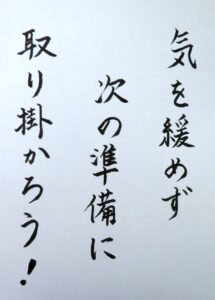 気を緩めず
次の準備に
取り掛かろう！